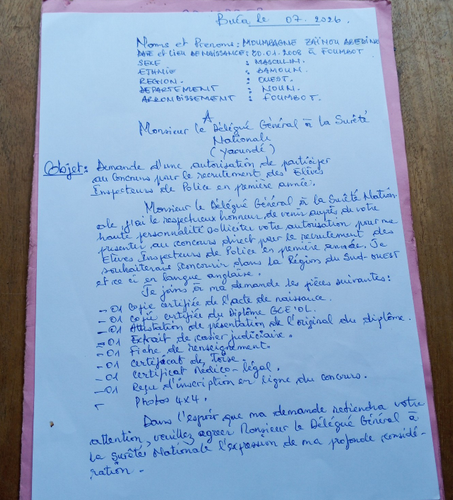 Buéa, le 07. 2026.
Noms et Prénoms: MOUMBAGNE ZAÏNOU AREDINE
DATE et LIEU DE NAISSANCE: 00.01.2008 à FOUMBOT
SEXE : MASCULIN.
ETHNIE : BAMOUN.
REGION : OUEST.
DEPARTEMENT : NOUN.
ARRONDISSEMENT : FOUMBOT.
A
Monsieur le Délégué Général à la Sureté
Nationale
(Yaoundé)
Objet: Demande d'une autorisation de participer
au Concours pour le recrutement des Elèves
Inspecteurs de Police en première année.
Monsieur le Délégué Général à la Sureté Nation-
ale, j'ai le respectueux honneur de venir auprès de votre
haute personnalité solliciter votre autorisation pour me
présenter au concours direct pour le recrutement des
Elèves Inspecteurs de Police en première année. Je
souhaiterais concourir dans la Région du Sud-ouest
et ce ci en langue anglaise.
Je joins à ma demande les pièces suivantes:
-01 Copie certifiée de l'acte de naissance.
-01 Copie certifiée du Diplôme GCE'OL.
-01 Attestation de présentation de l'original du diplôme.
-01 Extrait de casier judiciaire.
-01 Fiche de renseignement.
-01 Certificat de Toise
-01 Certificat médico-légal.
-01 Reçu d'inscription en ligne du concours.
- Photos 4x4.
Dans l'espoir que ma demande retiendra votre
attention, veuillez agréer Monsieur le Délégué Général à
la Sureté Nationale l'expression de ma profonde considé-
ration -